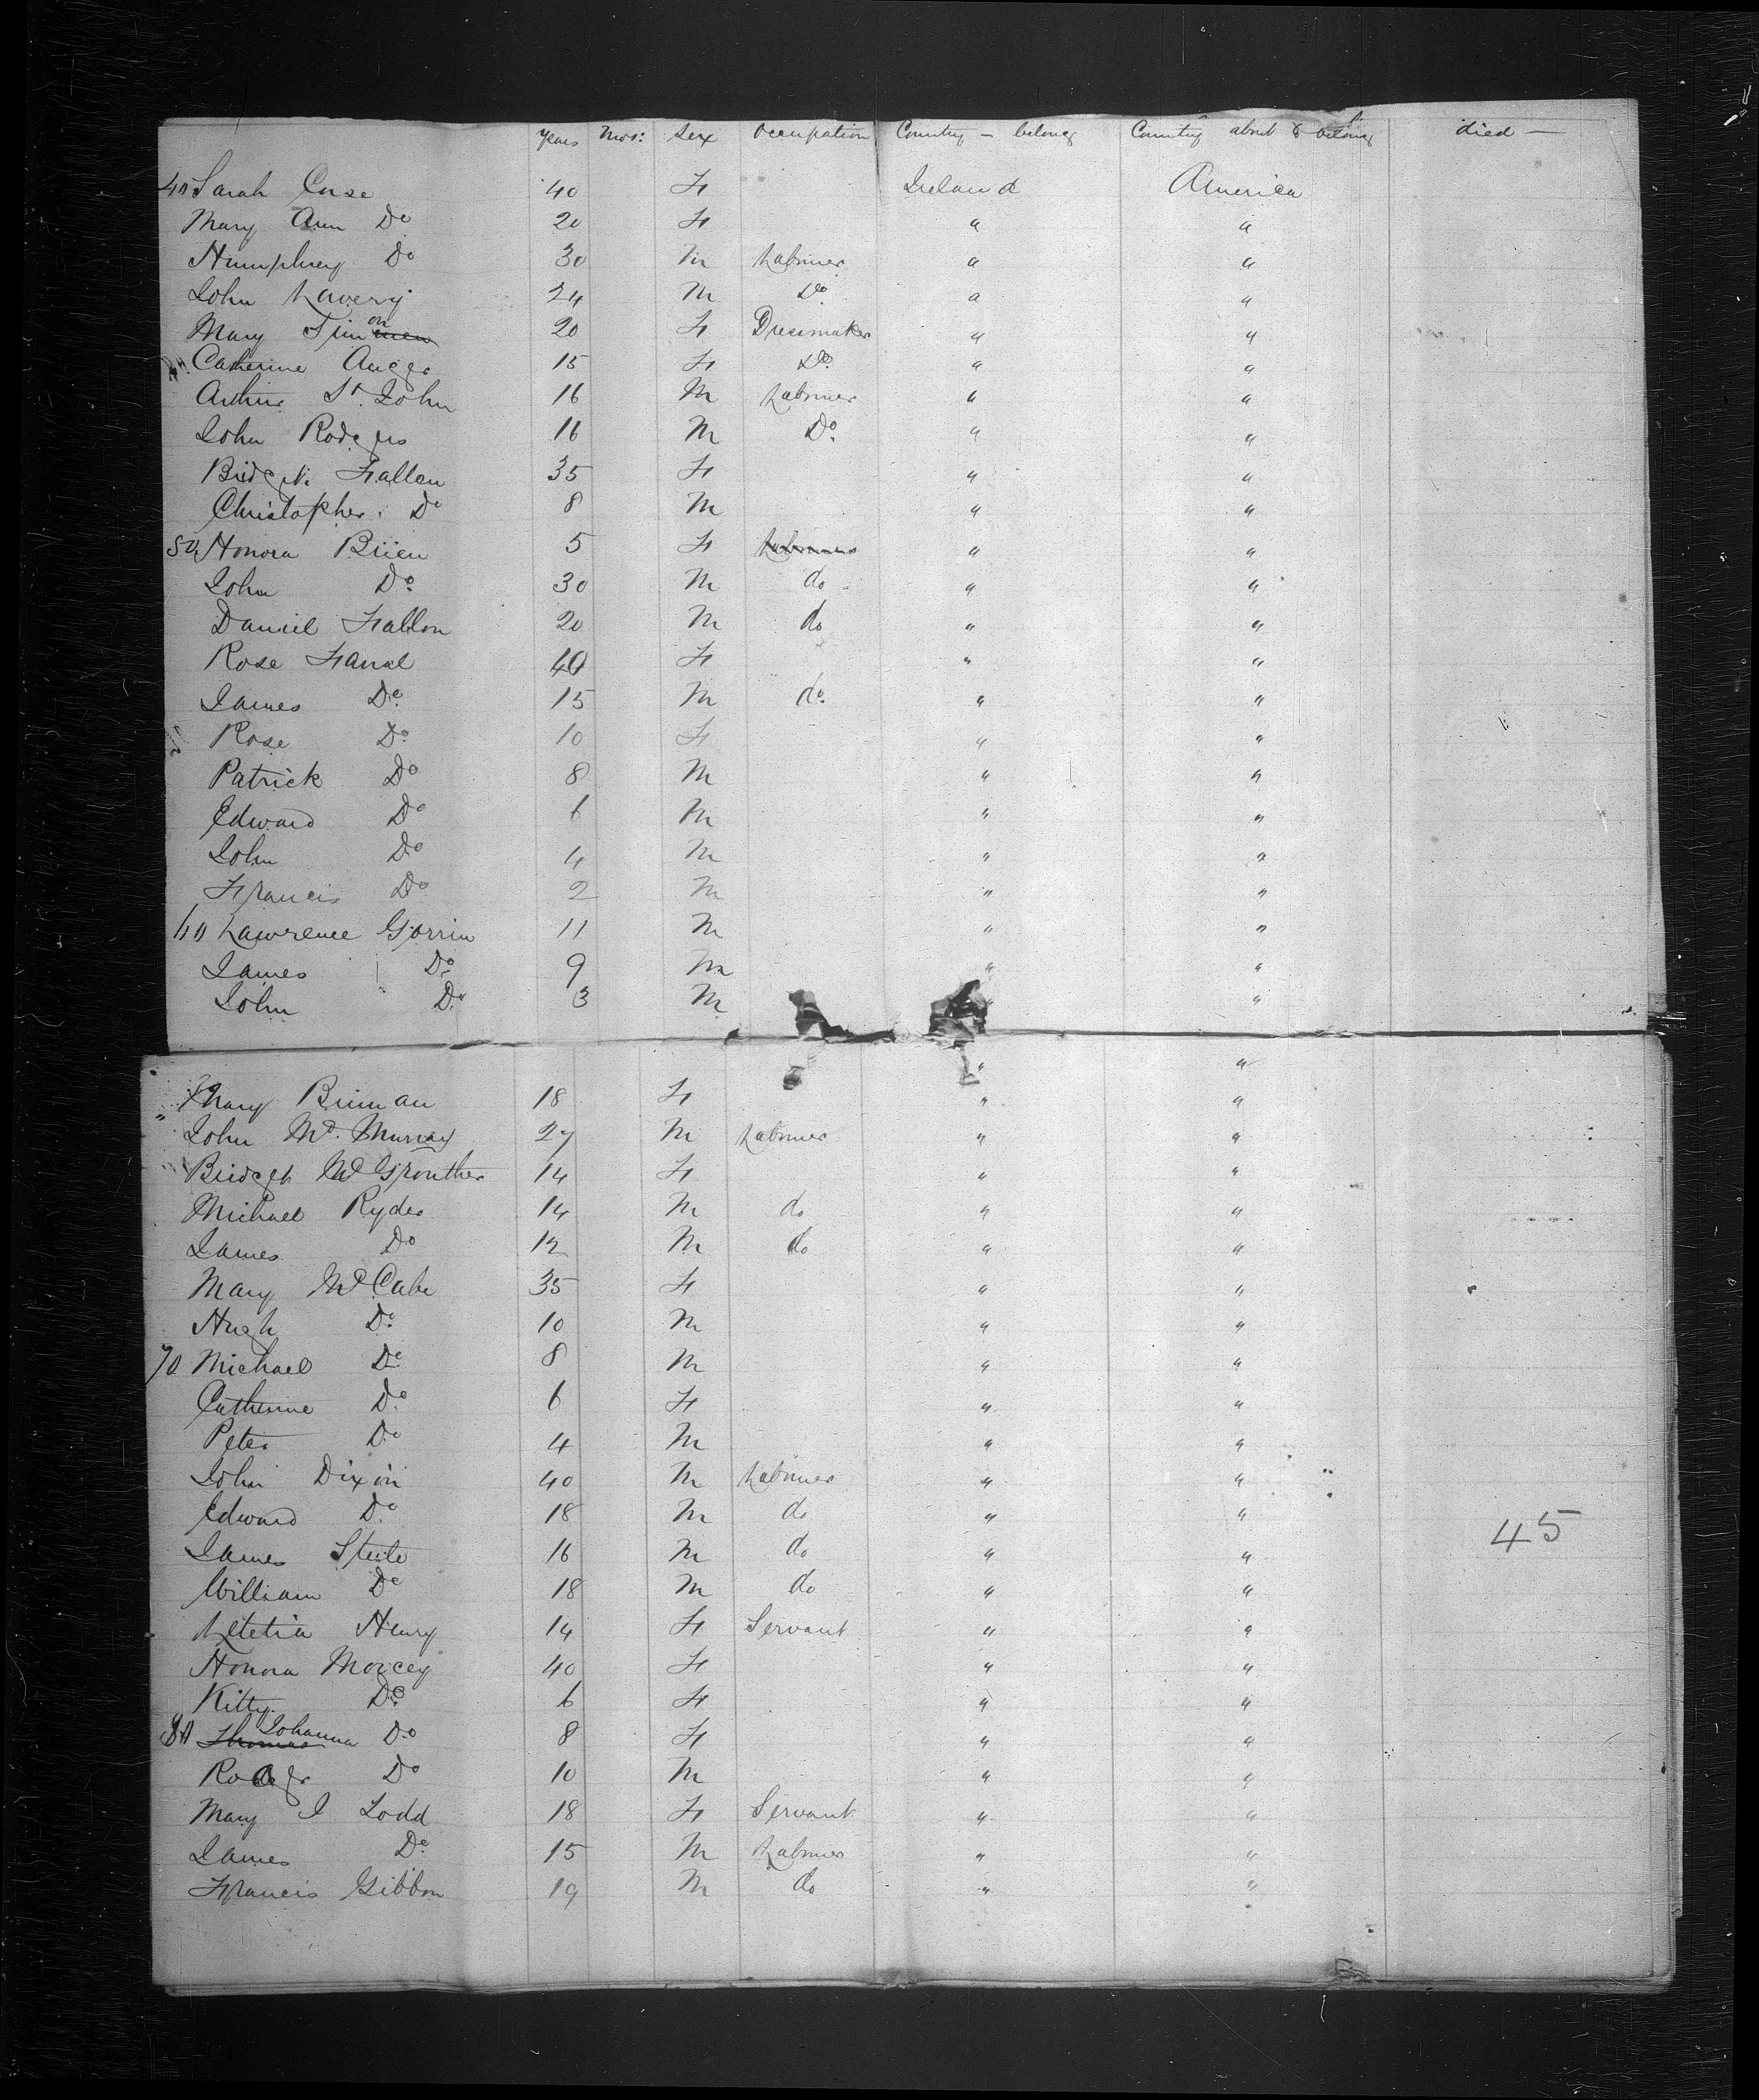 years mos: sex occupation Country - belong Country about to belong died -
40 Sarah Case 40 F Ireland America
Mary Ann Do 20 F " "
Humphrey Do 30 M Labourer " "
John Lavery 24 M Do " "
Mary Timon 20 F Dressmaker " "
Catherine Auger 15 F Do " "
Arthur St. John 16 M Labourer " "
John Rodgers 16 M Do " "
Bridget Fallon 35 F " "
Christopher Do 8 M " "
50 Honora Brien 5 F Labourer " "
John Do 30 M do " "
Daniel Fallon 20 M do " "
Rose Farral 40 F " "
James Do 15 M do " "
Rose Do 10 F " "
Patrick Do 8 M " "
Edward Do 6 M " "
John Do 4 M " "
Francis Do 2 M " "
60 Lawrence Gorrin 11 M " "
James Do 9 M " "
John Do 3 M " "
" "
Mary Brinnan 18 F " "
John Mc Murray 27 M Labourer " "
Bridget Mc Grouther 14 F " "
Michael Ryder 14 M do " "
James Do 12 M do " "
Mary Mc Cabe 35 F " "
Hugh Do 10 M " "
70 Michael Do 8 M " "
Catherine Do 6 F " "
Peter Do 4 M " "
John Dixon 40 M Labourer " "
Edward Do 18 M do " "
45
James Steile 16 M do " "
William Do 18 M do " "
Letetia Henry 14 F Servant " "
Honora Morcey 40 F " "
Kitty Do 6 F " "
80 Thomas Johanna Do 8 F " "
Rodger Do 10 M " "
Mary J Todd 18 F Servant " "
James Do 15 M Labourer " "
Francis Gibbon 19 M do " "